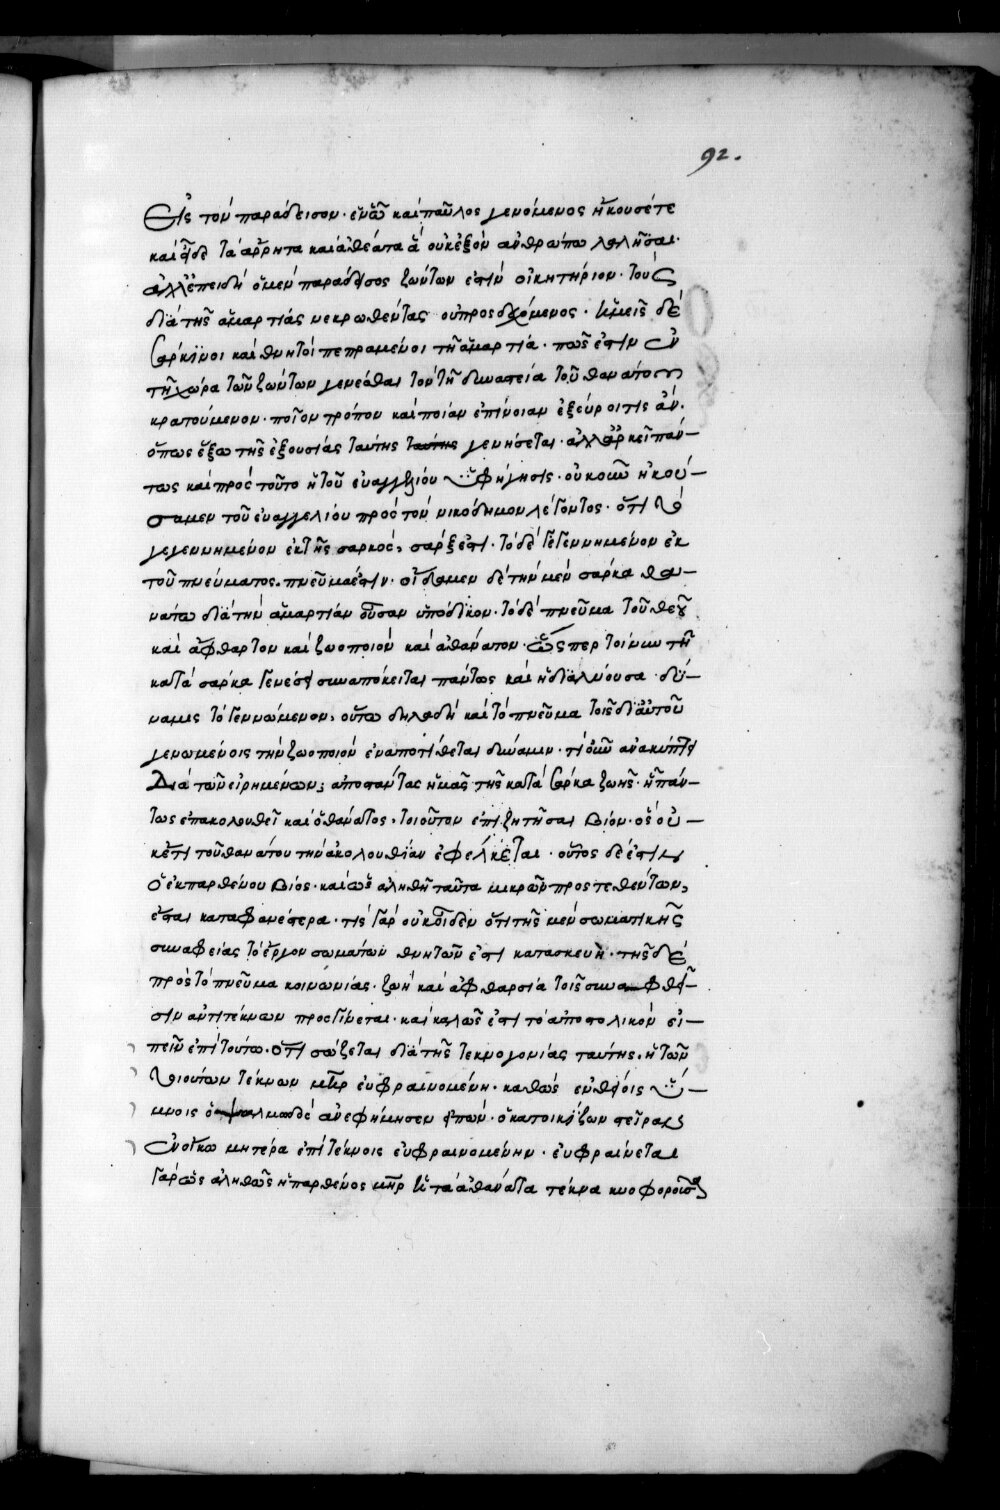 92.
Εἰς τὸν παράδεισον· ἐν ᾧ καὶ παῦλος γενόμενος ἤκουσέ τε
καὶ εἶδε τὰ ἄρρητα καὶ ἀθέατα ἃ οὐκ ἐξὸν ἀνθρώπω λαλῆσαι·
ἀλλ' ἐπειδὴ ὁ μὲν παράδεισος ζώντων ἐστὶν οἰκητήριον· τοὺς
διὰ τῆς ἁμαρτίας νεκρωθέντας οὐ προσδεχόμενος· ἡμεῖς δὲ
σάρκινοι καὶ θνητοὶ πεπραμένοι τῆ ἁμαρτία· πῶς ἐστιν ἐν
τῆ χώρα τῶν ζώντων γενέσθαι τὸν τῆ δυναστεία τοῦ θανάτου
κρατούμενον· ποῖον τρόπον καὶ ποίαν ἐπίνοιαν ἐξεύροι τις ἂν·
ὅπως ἔξω τῆς ἐξουσίας ταύτης ταύτης γενήσεται· ἀλλ' ἀρκεῖ πάν-
τως καὶ πρὸς τοῦτο ἡ τοῦ εὐαγγελίου ὑφήγησις· οὐκοῦν ἠκού-
σαμεν τοῦ εὐαγγελίου πρὸς τὸν νικόδημον λέγοντος· ὅτι τὸ
γεγεννημένον ἐκ τῆς σαρκὸς, σάρξ ἐστι· τὸ δὲ γεγεννημένον ἐκ
τοῦ πνεύματος, πνεῦμα ἐστιν· οἴδαμεν δὲ τὴν μὲν σάρκα θα-
νάτω διὰ τὴν ἁμαρτίαν οὖσαν ὑπόδικον· τὸ δὲ πνεῦμα τοῦ θεοῦ
καὶ ἄφθαρτον καὶ ζωοποιὸν καὶ ἀθάνατον· ὥσπερ τοίνυν τῆ
κατὰ σάρκα γενέσει συναπόκειται πάντως καὶ ἡ διαλύουσα δύ-
ναμις τὸ γεννώμενον, οὕτω δηλαδὴ καὶ τὸ πνεῦμα τοῖς δι' αὐτοῦ
γενωμένοις τὴν ζωοποιὸν ἐναποτίθεται δύναμιν· τί οὖν ἀνακύπτει
Διὰ τῶν εἰρημένων; ἀποστάντας ἡμᾶς τῆς κατὰ σάρκα ζωῆς· ἧ πάν-
τως ἐπακολουθεῖ καὶ ὁ θάνατος, τοιοῦτον ἐπιζητῆσαι βίον· ὃς οὐ-
κέτι τοῦ θανάτου τὴν ἀκολουθίαν ἐφέλκεται· οὗτος δέ ἐστιν
ὁ ἐκ παρθένου βίος· καὶ ὡς ἀληθῆ ταῦτα μικρῶν προστεθέντων,
ἔσται καταφανέστερα· τίς γὰρ οὐκ οἶδεν ὅτι τῆς μὲν σωματικῆς
συναφείας τὸ ἔργον σωμάτων θνητῶν ἐστι κατασκευὴ· τῆς δὲ
πρὸς τὸ πνεῦμα κοινωνίας· ζωὴ καὶ ἀφθαρσία τοῖς συναφθεῖ-
σιν ἀντὶ τέκνων προσγίνεται· καὶ καλῶς ἐστι τὸ ἀποστολικὸν εἰ-
πεῖν ἐπὶ τούτω· ὅτι σώζεται διὰ τῆς τεκνογονίας ταύτης· ἡ τῶν
τοιούτων τέκνων μῆτηρ εὐφραινομένη· καθὼς ἐν θείοις ὕ-
μνοις ὁ ψαλμωδὸς ἀνεφήμησεν εἰπών· ὁ κατοικίζων στεῖραν
ἐν οἴκω μητέρα ἐπὶ τέκνοις εὐφραινομένην· εὐφραίνεται
γὰρ ὡς ἀληθῶς ἡ παρθένος μῆτηρ ἡ τὰ ἀθάνατα τέκνα κυοφοροῦσα